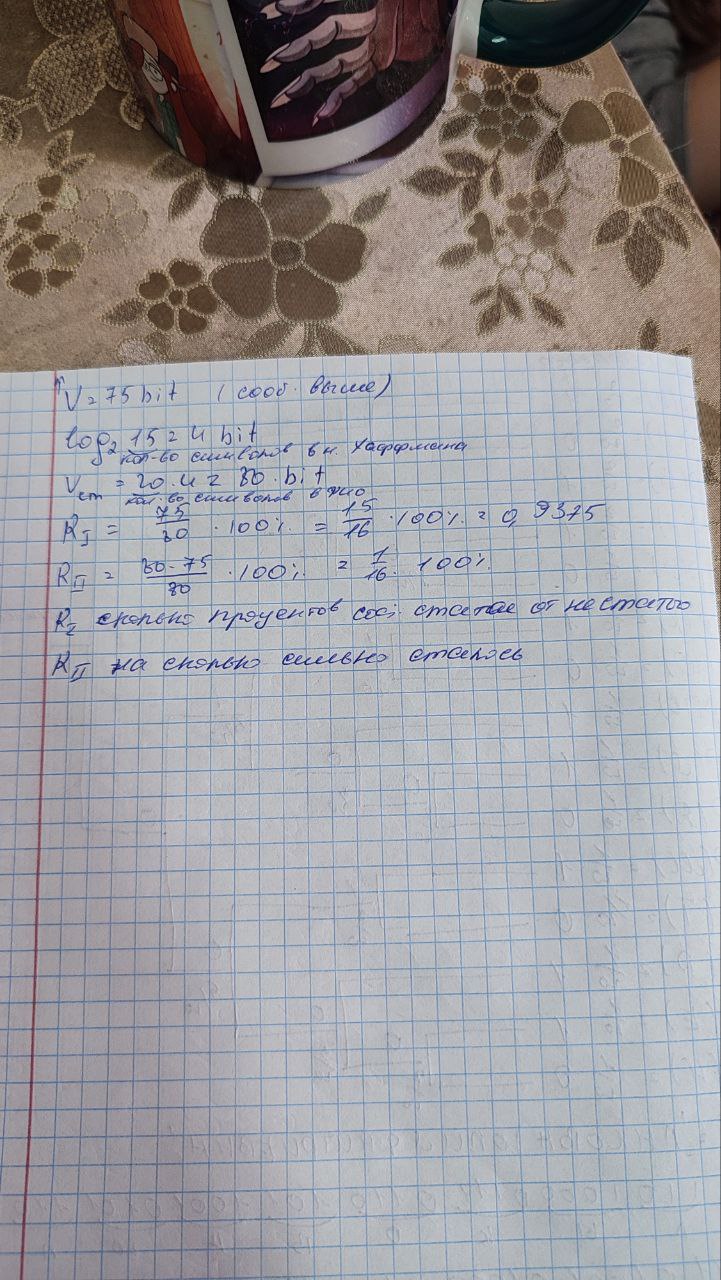 V = 75 bit ( сооб. выше)
log₂ 15 = 4 bit
кол-во символов в н. Хаффмана
Vст = 20 · 4 = 80 · bit
кол-во символов в
R_I = 75/80 · 100% = 15/16 · 100% = 0,9375
R_II = 80-75/80 · 100% = 1/16 · 100%
R_I сколько процентов соо. сжатое от несжатого
R_II на сколько сильно сжалось